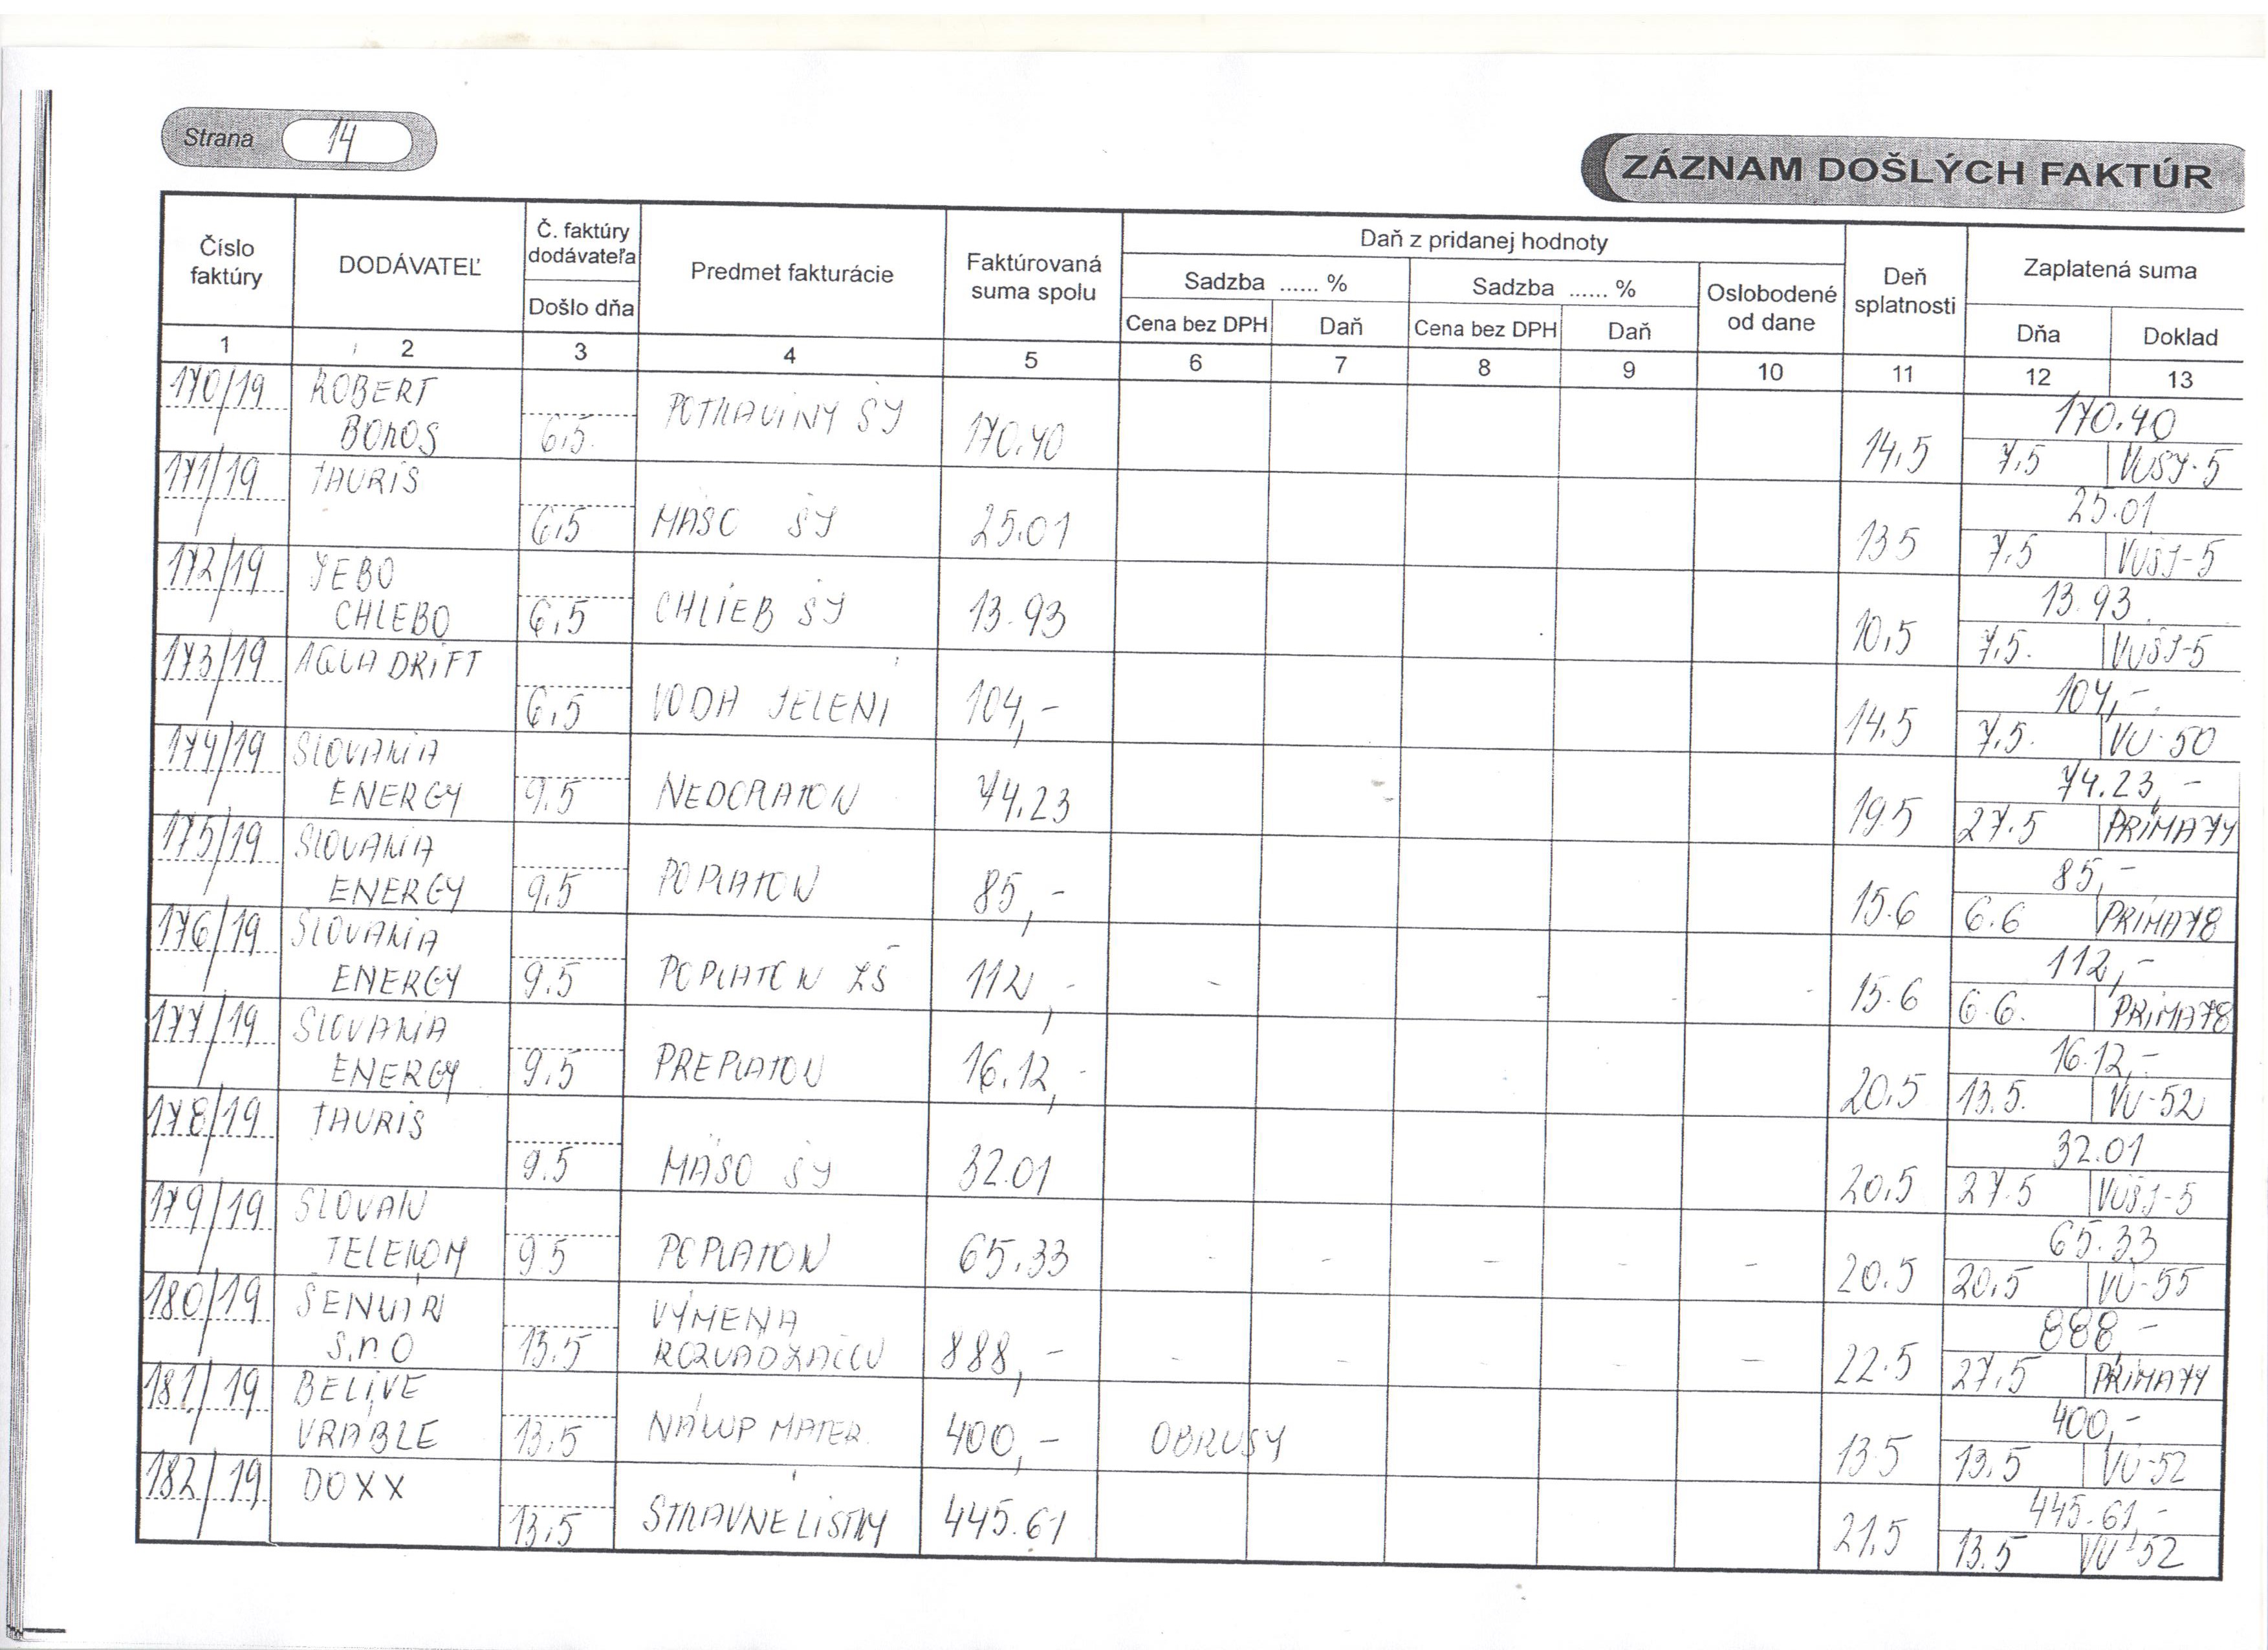 Strana 14
ZÁZNAM DOŠLÝCH FAKTÚR
Číslo faktúry
DODÁVATEĽ
Č. faktúry dodávateľa
Došlo dňa
Predmet fakturácie
Faktúrovaná suma spolu
Daň z pridanej hodnoty
Sadzba ...... %
Cena bez DPH
Daň
Sadzba ...... %
Cena bez DPH
Daň
Oslobodené od dane
Deň splatnosti
Zaplatená suma
Dňa
Doklad
1 2 3 4 5 6 7 8 9 10 11 12 13
170/19 ROBERT 170.40
BOROS 6.5. POTRAVINY ŠJ 170.40 14.5 7.5 VÚŠJ-5
171/19 TAURIS 25.01
6.5 MÄSO ŠJ 25.01 13.5 7.5 VÚŠJ-5
172/19 JEBO 13.93
CHLEBO 6.5 CHLIEB ŠJ 13.93 10.5 7.5. VÚŠJ-5
173/19 AQUA DRIFT 104,-
6.5 VODA JELENI 104,- 14.5 7.5. VÚ-50
174/19 SLOVAKIA 74.23,-
ENERGY 9.5 NEDOPLATOK 74.23 19.5 27.5 PRIMA 74
175/19 SLOVAKIA 85,-
ENERGY 9.5 POPLATOK 85,- 15.6 6.6 PRIMA 78
176/19 SLOVAKIA 112,-
ENERGY 9.5 POPLATOK ZŠ 112,- 15.6 6.6. PRIMA 78
177/19 SLOVAKIA 16.12,-
ENERGY 9.5 PREPLATOK 16.12,- 20.5 13.5. VÚ-52
178/19 TAURIS 32.01
9.5 MÄSO ŠJ 32.01 20.5 27.5 VÚŠJ-5
179/19 SLOVAK 65.33
TELEKOM 9.5 POPLATOK 65.33 - - - - - 20.5 20.5 VÚ-55
180/19 VÝMENA 888,-
S.R.O 13.5 ROZVÁDZAČOV 888,- - - - - - 22.5 27.5 PRIMA 74
181/19 BELIVE 400,-
VRÁBLE 13.5 NÁKUP MATER. 400,- OBRUSY 13.5 13.5 VÚ-52
182/19 DOXX 445.61,-
13.5 STRAVNÉ LÍSTKY 445.61 21.5 13.5 VÚ-52